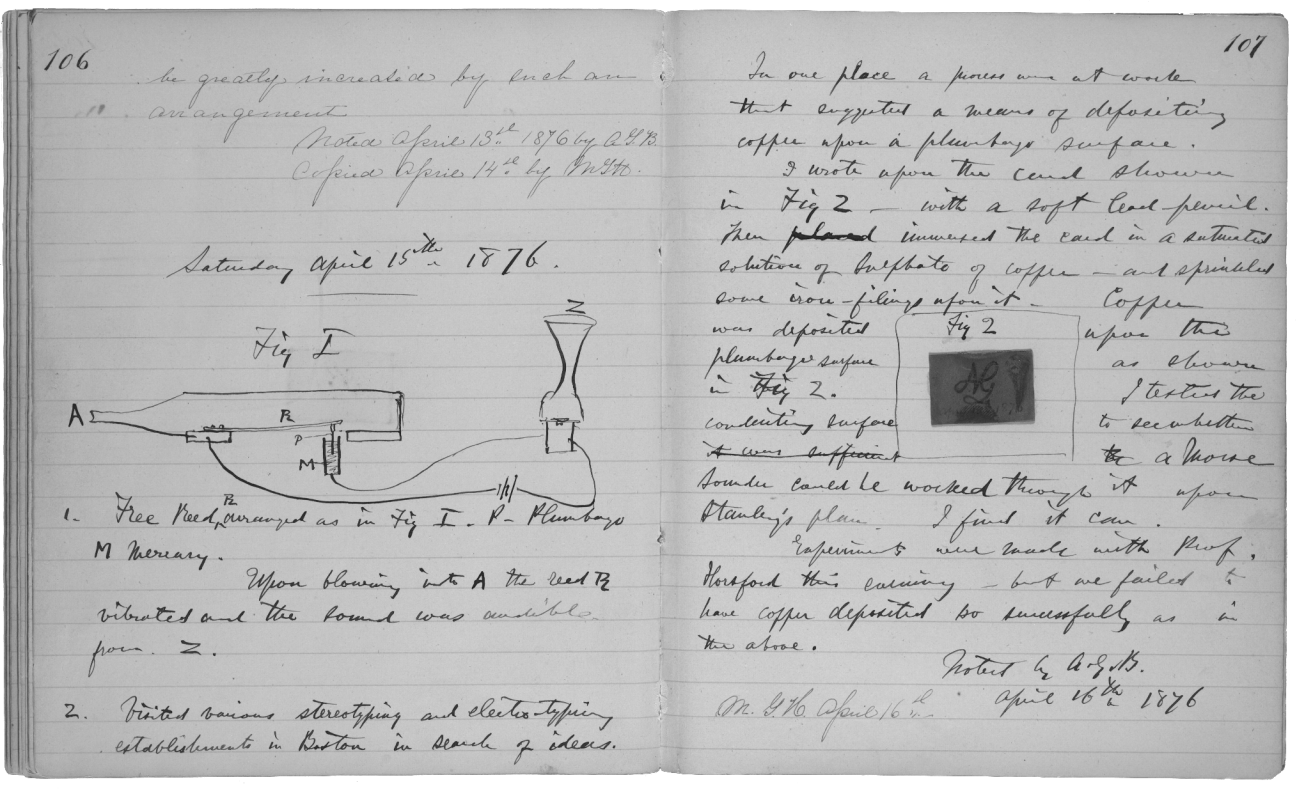 106
be greatly increased by such an
arrangement
Noted April 13th 1876 by A.G.B.
Copied April 14th by M.G.H.
Saturday April 15th 1876.
Fig I
Z
A
R
P
M
1. Free Reed, R arranged as in Fig I. P - Plumbago
M Mercury.
Upon blowing into A the reed R
vibrated and the sound was audible
from Z.
2. Visited various stereotyping and electro-typing
establishments in Boston in search of ideas.
107
In one place a process was at work
that suggested a means of depositing
copper upon a plumbago surface.
I wrote upon the card shown
in Fig 2 - with a soft lead-pencil.
Then placed immersed the card in a saturated
solution of Sulphate of copper - and sprinkled
some iron-filings upon it - Copper
was deposited upon the
plumbago surface as shown
in Fig 2. I tested the
conducting surface to see whether
it was sufficient a Morse
Fig 2
AG
Sounder could be worked through it upon
Stanley's plan. I find it can.
Experiments were made with Prof.
Horsford this evening - but we failed to
have copper deposited so successfully as in
the above.
Noted by A.G.B.
April 16th 1876
M.G.H. April 16th